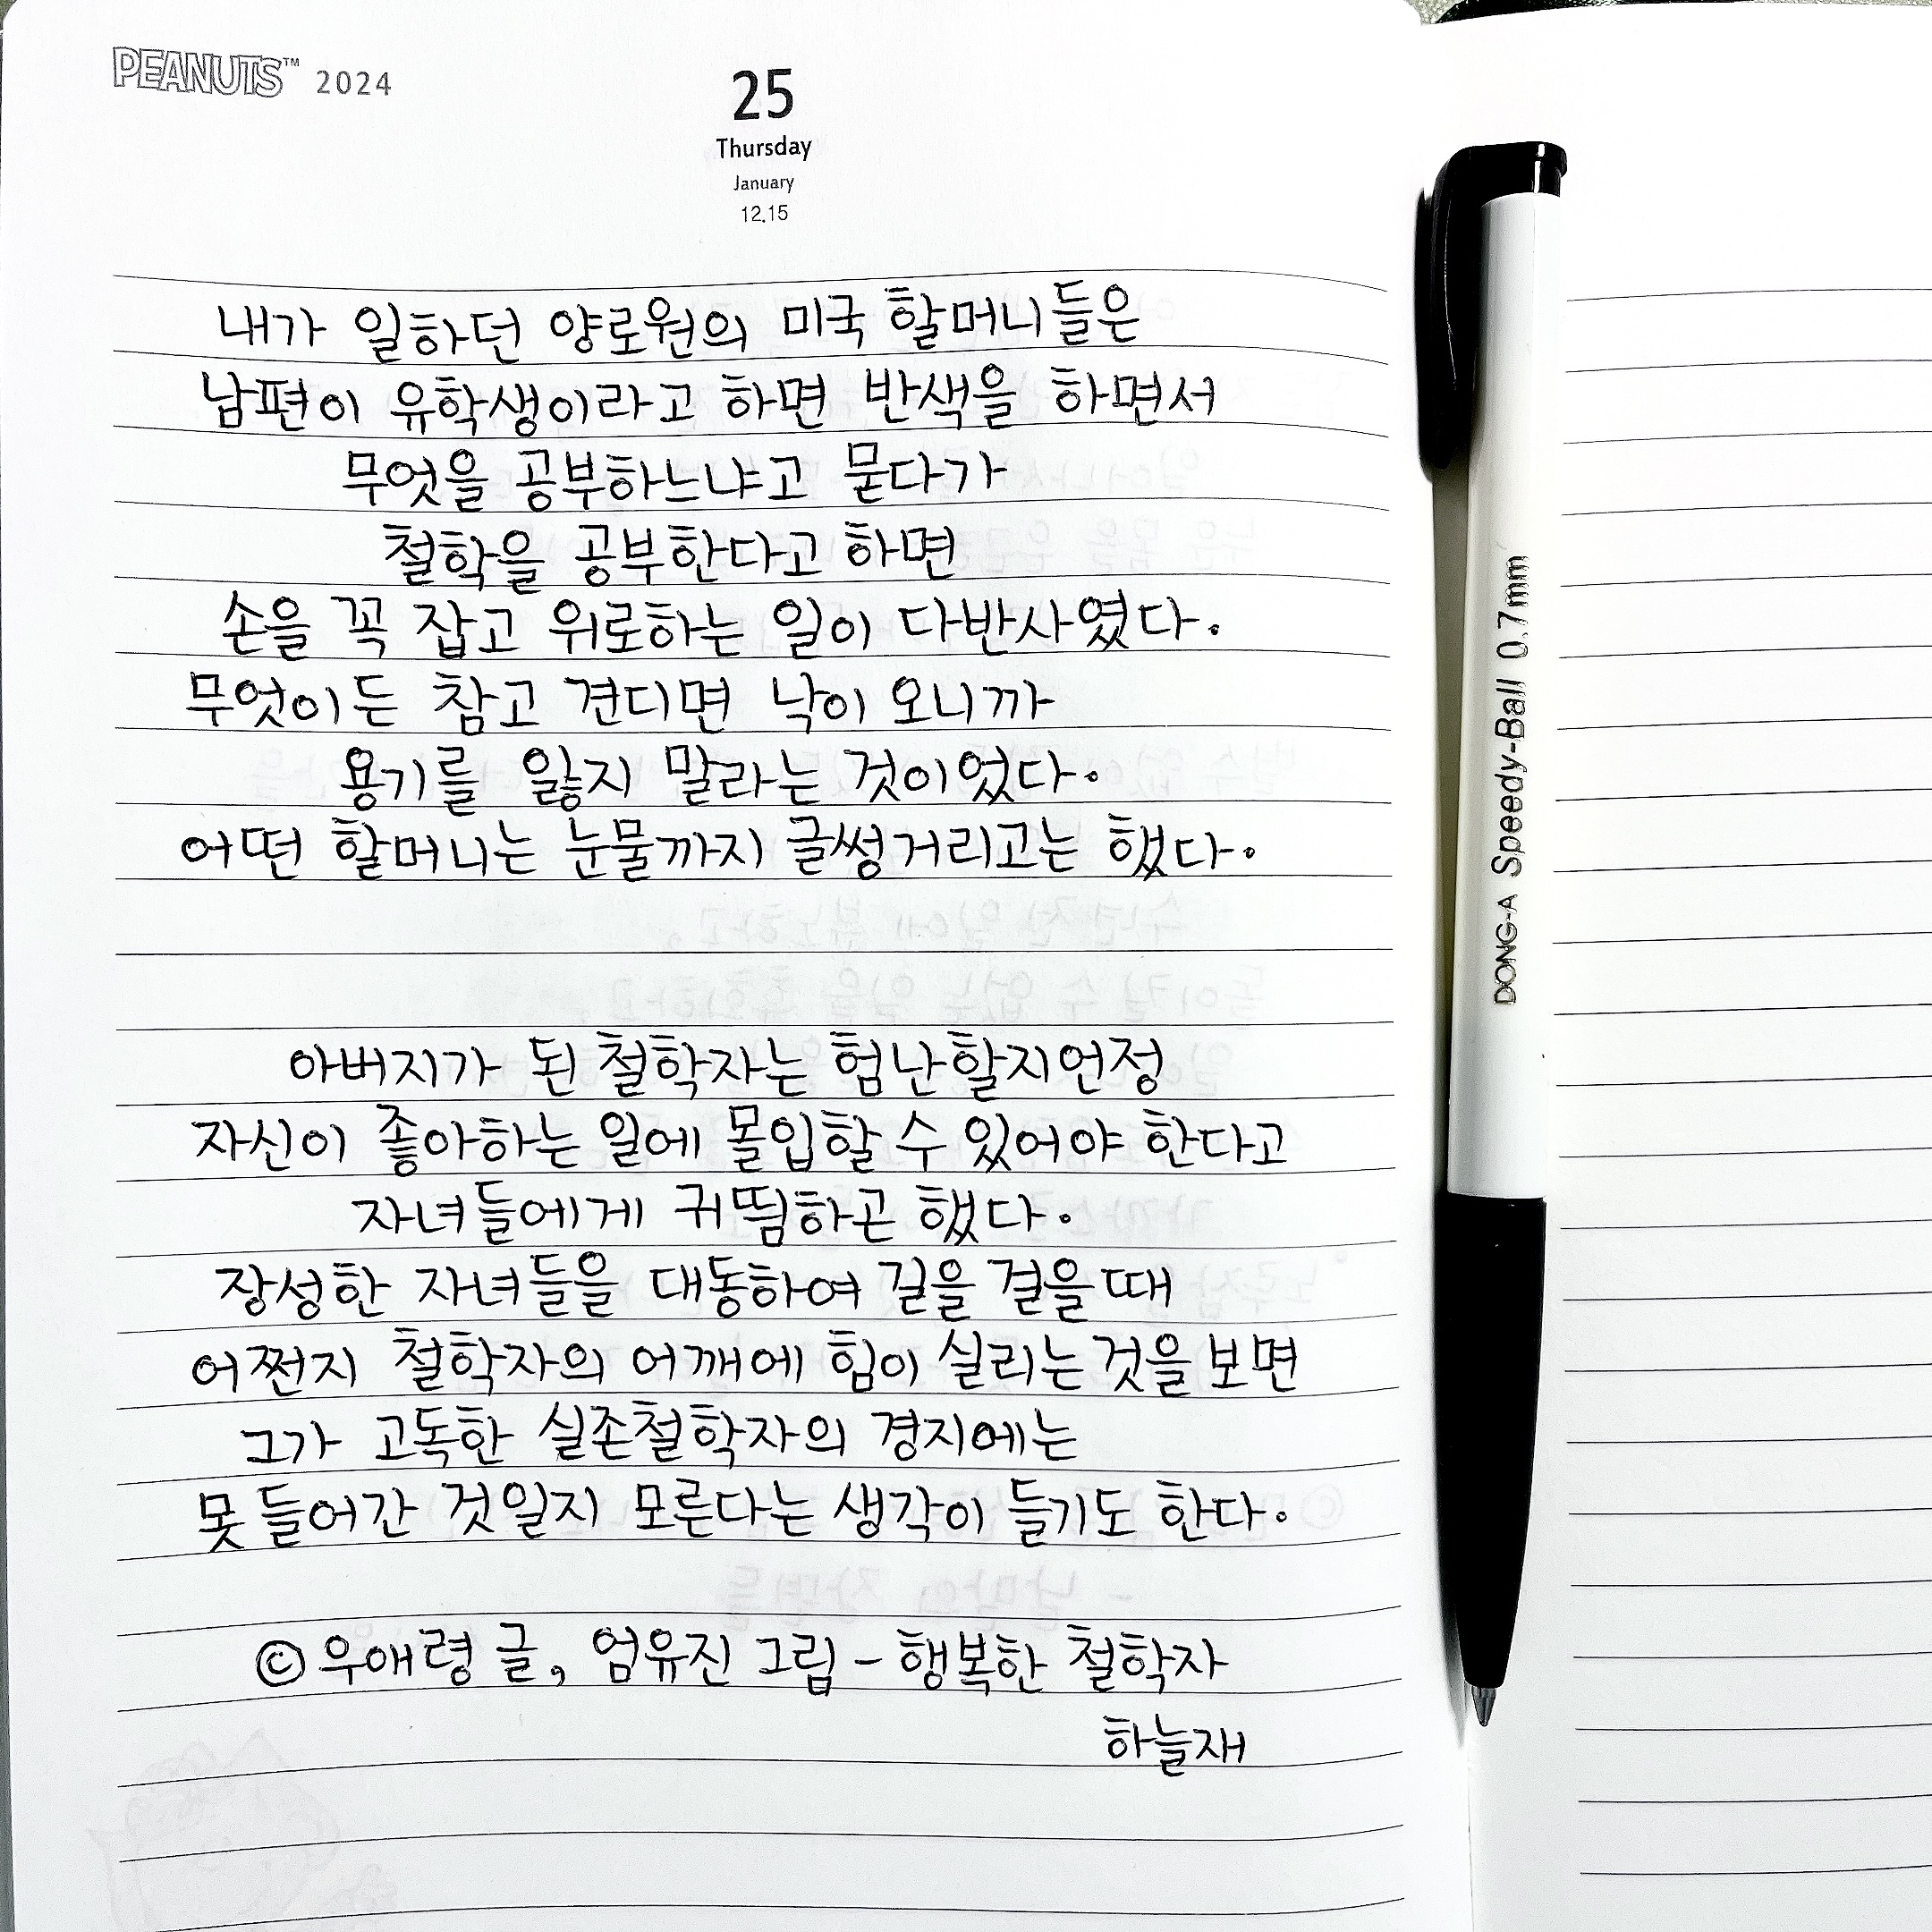 PEANUTS™ 2024
25
Thursday
January
12.15
내가 일하던 양로원의 미국 할머니들은
남편이 유학생이라고 하면 반색을 하면서
무엇을 공부하느냐고 묻다가
철학을 공부한다고 하면
손을 꼭 잡고 위로하는 일이 다반사였다.
무엇이든 참고 견디면 낙이 오니까
용기를 잃지 말라는 것이었다.
어떤 할머니는 눈물까지 글썽거리고는 했다.
아버지가 된 철학자는 험난할지언정
자신이 좋아하는 일에 몰입할 수 있어야 한다고
자녀들에게 귀띔하곤 했다.
장성한 자녀들을 대동하여 길을 걸을 때
어쩐지 철학자의 어깨에 힘이 실리는 것을 보면
그가 고독한 실존철학자의 경지에는
못 들어간 것일지 모른다는 생각이 들기도 한다.
© 우애령 글, 엄유진 그림 - 행복한 철학자
하늘재
DONG-A Speedy-Ball 0.7mm